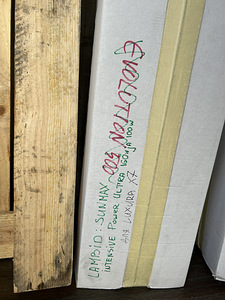 EVOLUTION 500
CAMBIO: SUNMAX
INTENSIVE POWER ULTRA 160W/A 100W
SOA LUXURA X7